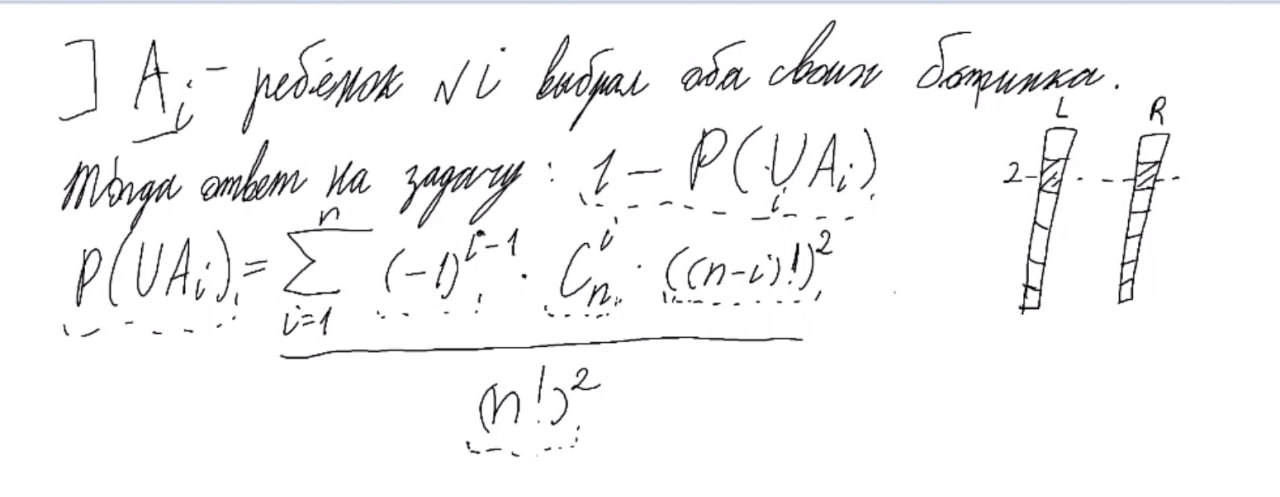 ] Aᵢ - ребёнок № i выбрал оба своих ботинка.
Тогда ответ на задачу: 1 - P(∪ᵢ Aᵢ)
P(∪Aᵢ) = \frac{\sum_{i=1}^{n} (-1)^{i-1} · C_n^i · ((n-i)!)^2}{(n!)^2}
L R
2